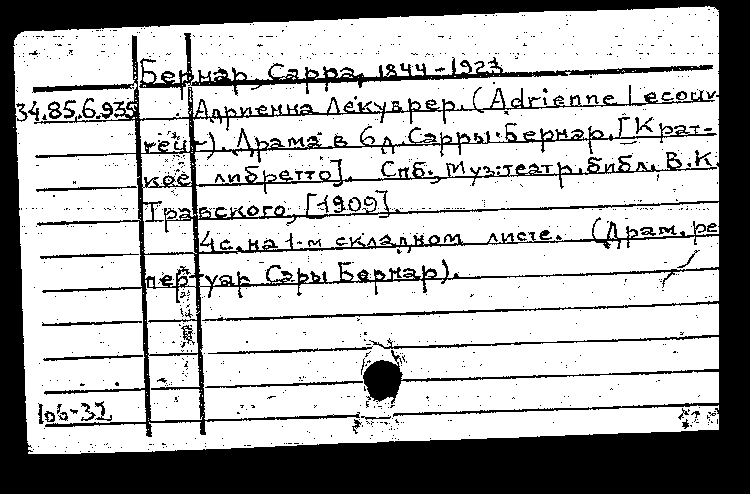 Бернар, Сарра, 1844-1923
34.85.6.935 Адриенна Лекуврер. (Adrienne Lecouv-
reur). Драма в 6 д. Сарры Бернар. [Крат-
кое либретто]. Спб., Муз.-театр. библ. В.К.
Травского, [1909].
4 с. на 1-м складном листе. (Драм. ре
пертуар Сары Бернар).
106-32